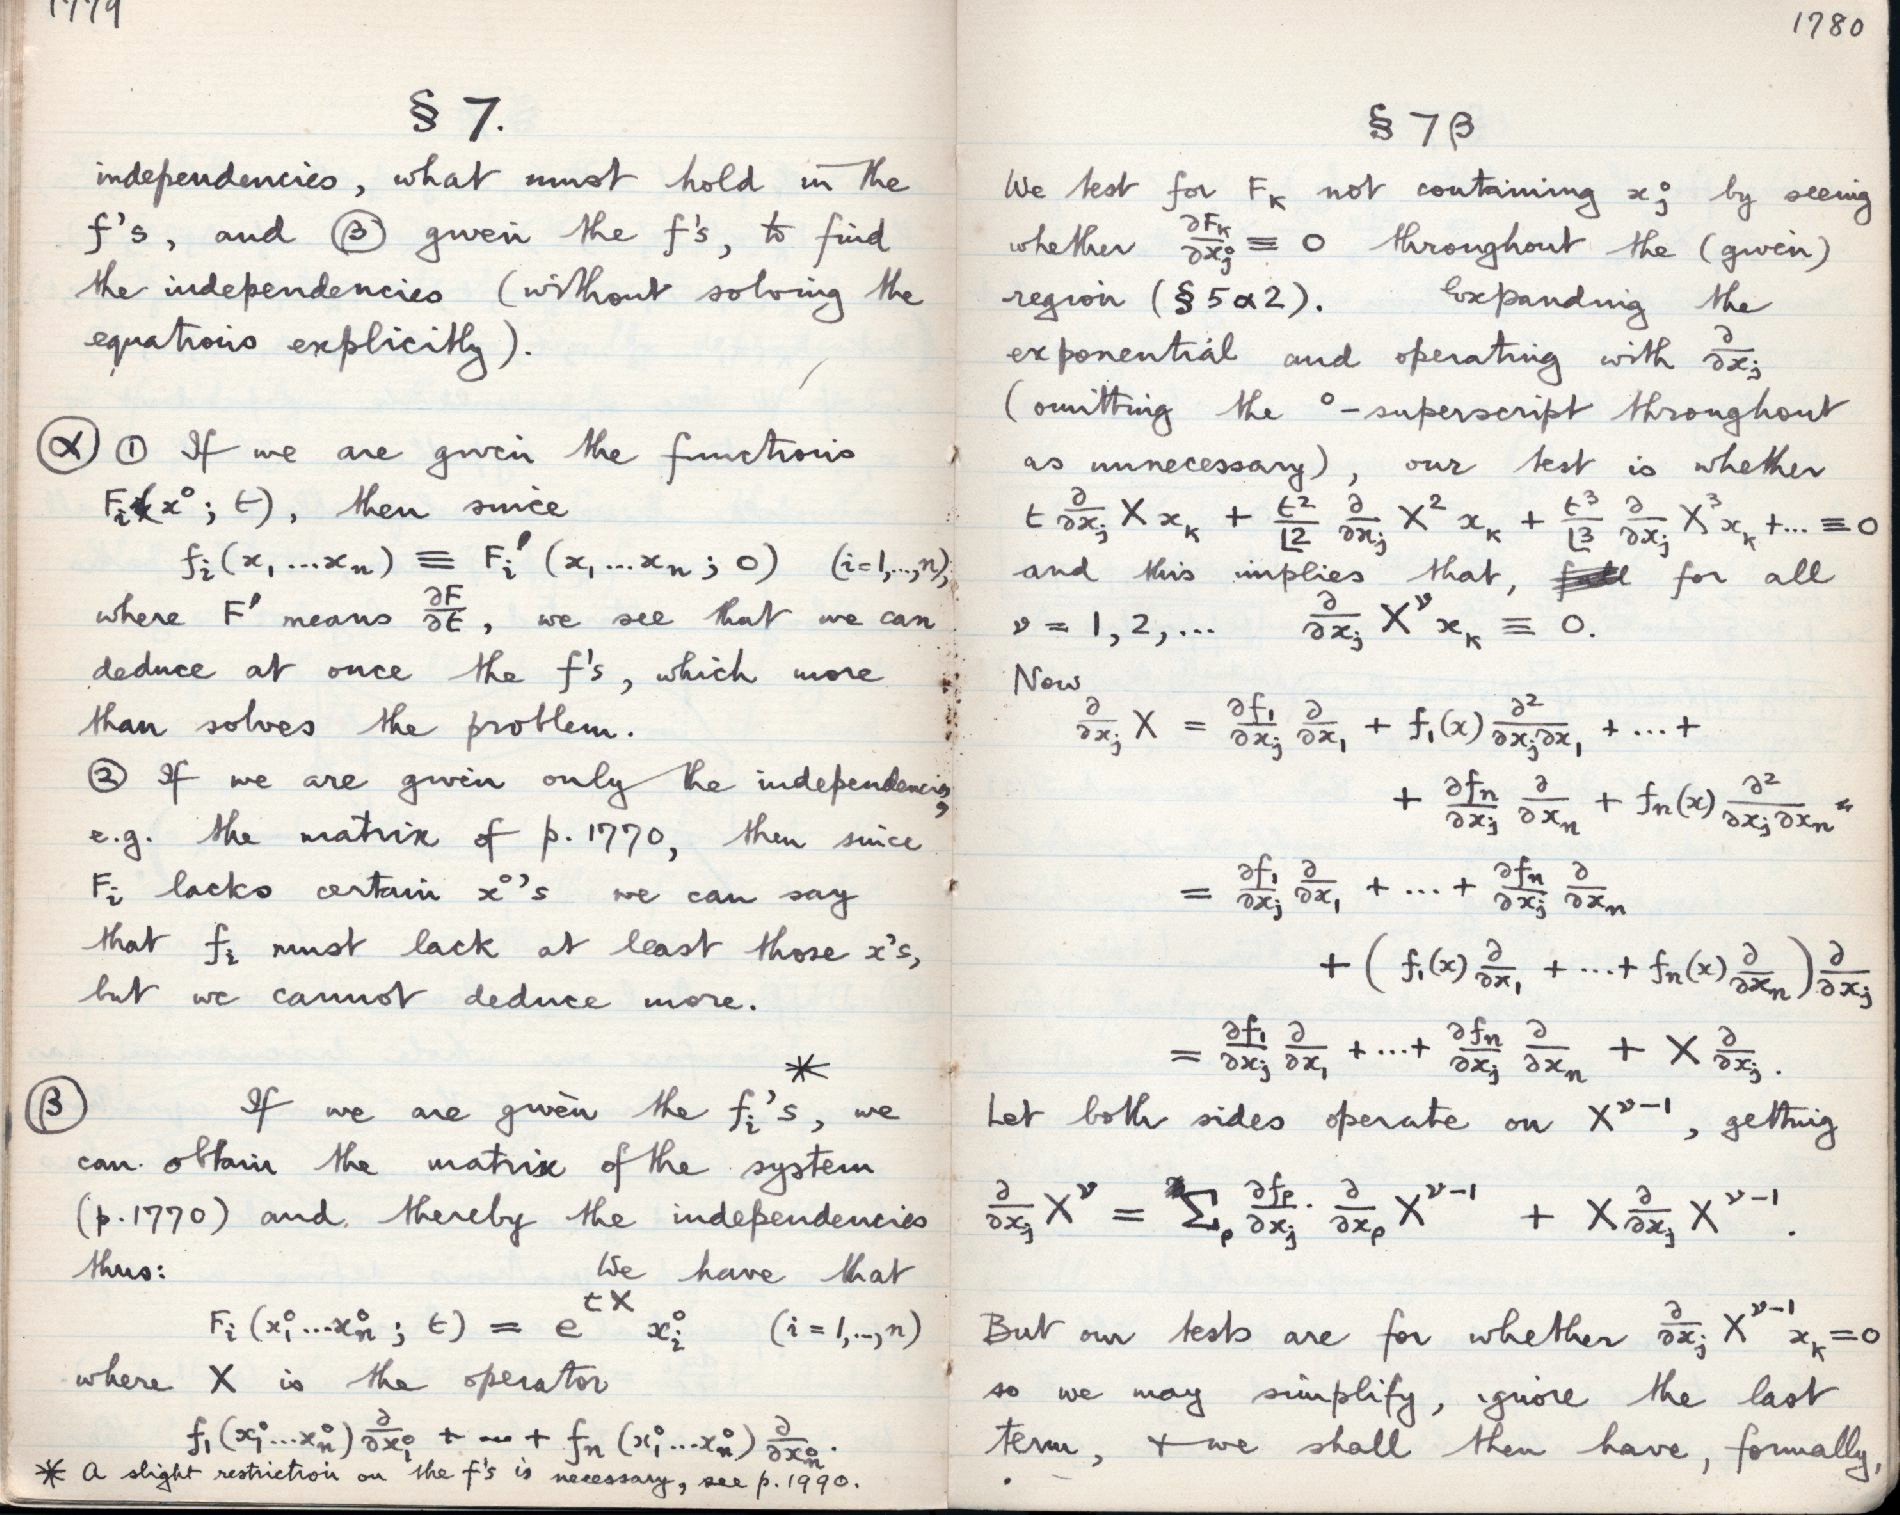 1779
§ 7.
independencies, what must hold in the
f's, and Ⓑ given the f's, to find
the independencies (without solving the
equations explicitly).
ⓐ ① If we are given the functions
Fᵢ(x°; t), then since
fᵢ(x₁ ... xₙ) ≡ Fᵢ′ (x₁ ... xₙ; 0) (i=1,...,n),
where F′ means ∂F/∂t, we see that we can
deduce at once the f's, which more
than solves the problem.
② If we are given only the independencies,
e.g. the matrix of p. 1770, then since
Fᵢ lacks certain x°'s we can say
that fᵢ must lack at least those x's,
but we cannot deduce more.
Ⓑ If we are given the fᵢ's*, we
can obtain the matrix of the system
(p. 1770) and thereby the independencies
thus: We have that
Fᵢ (x₁° ... xₙ°; t) = e^{tX} xᵢ° (i = 1,..,n)
where X is the operator
f₁(x₁° ... xₙ°) ∂/∂x₁° + ... + fₙ (x₁° ... xₙ°) ∂/∂xₙ°.
* A slight restriction on the f's is necessary, see p. 1990.
1780
§ 7 β
We test for Fₖ not containing xⱼ° by seeing
whether ∂Fₖ/∂xⱼ° ≡ 0 throughout the (given)
region (§ 5 α 2). Expanding the
exponential and operating with ∂/∂xⱼ
(omitting the °-superscript throughout
as unnecessary), our test is whether
t ∂/∂xⱼ X xₖ + t²/⌊2 ∂/∂xⱼ X² xₖ + t³/⌊3 ∂/∂xⱼ X³ xₖ + ... ≡ 0
and this implies that, for all
ν = 1, 2, ... ∂/∂xⱼ X^ν xₖ ≡ 0.
Now
∂/∂xⱼ X = ∂f₁/∂xⱼ ∂/∂x₁ + f₁(x) ∂²/∂xⱼ∂x₁ + ... +
+ ∂fₙ/∂xⱼ ∂/∂xₙ + fₙ(x) ∂²/∂xⱼ∂xₙ =
= ∂f₁/∂xⱼ ∂/∂x₁ + ... + ∂fₙ/∂xⱼ ∂/∂xₙ
+ ( f₁(x) ∂/∂x₁ + ... + fₙ(x) ∂/∂xₙ ) ∂/∂xⱼ
= ∂f₁/∂xⱼ ∂/∂x₁ + ... + ∂fₙ/∂xⱼ ∂/∂xₙ + X ∂/∂xⱼ.
Let both sides operate on X^{ν-1}, getting
∂/∂xⱼ X^ν = Σₚ ∂fₚ/∂xⱼ · ∂/∂xₚ X^{ν-1} + X ∂/∂xⱼ X^{ν-1}.
But our tests are for whether ∂/∂xⱼ X^{ν-1} xₖ = 0
so we may simplify, ignore the last
term, + we shall then have, formally,